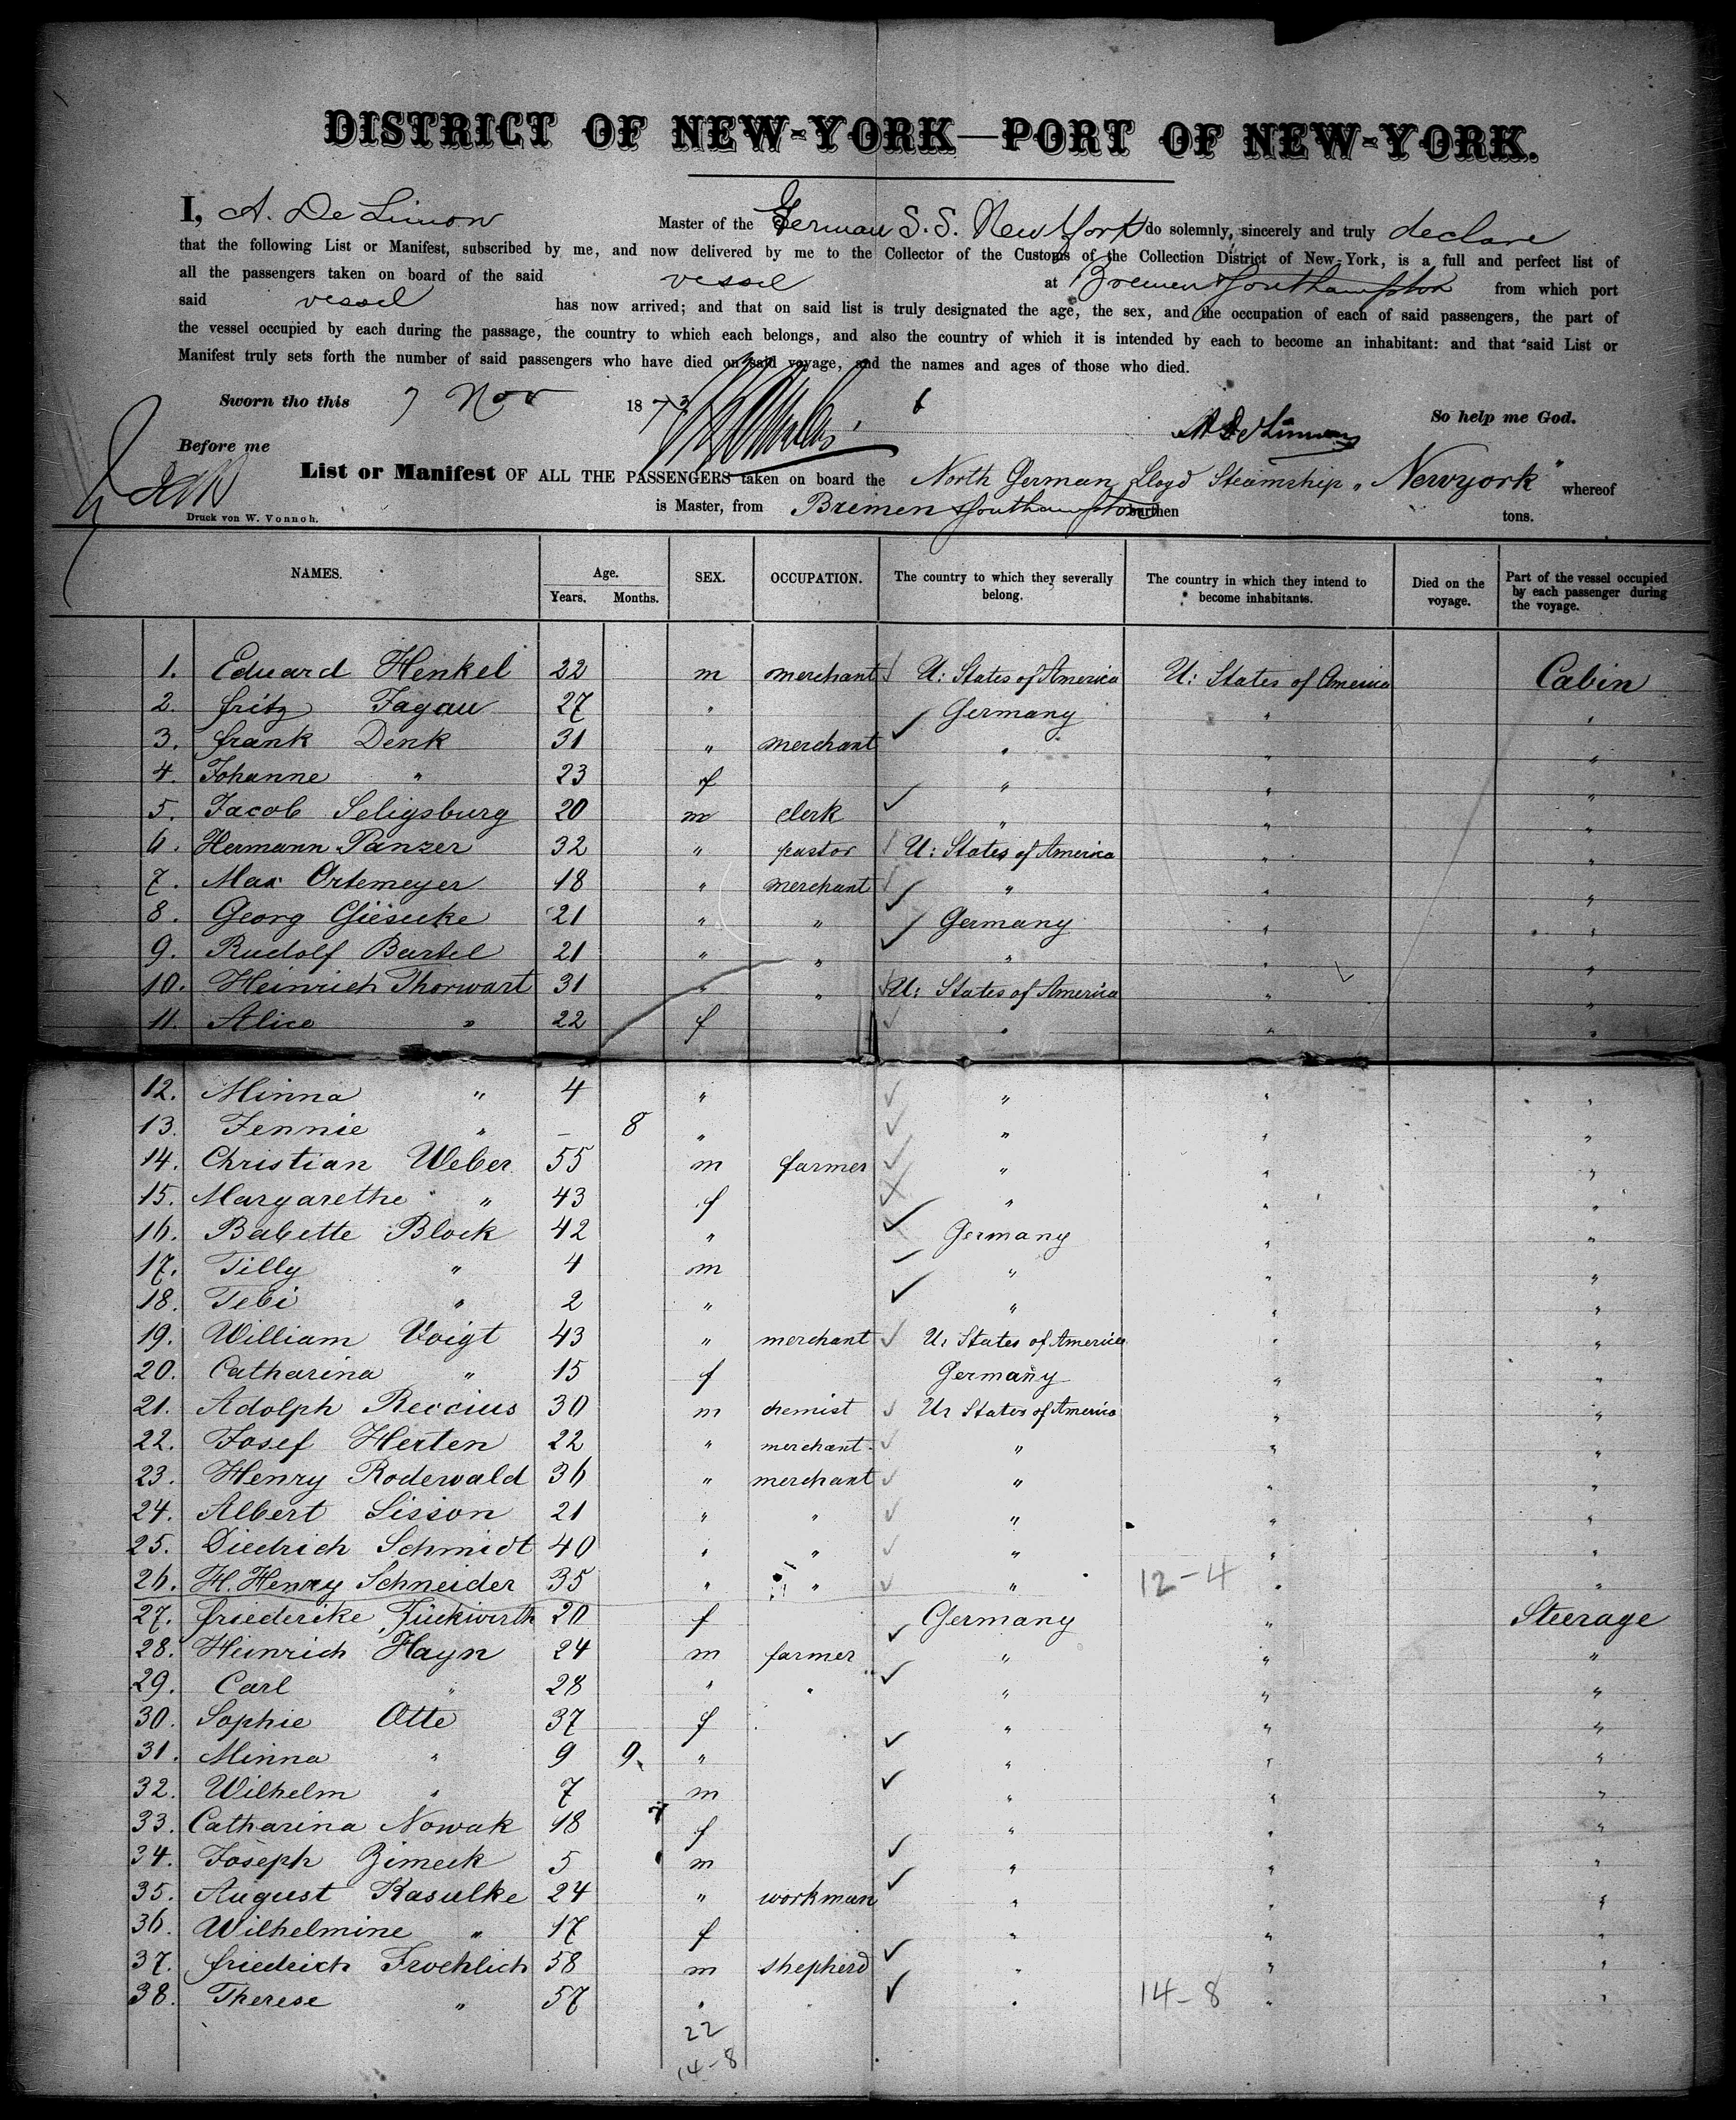 DISTRICT OF NEW-YORK—PORT OF NEW-YORK.
I, A. De Limon Master of the German S. S. New York do solemnly, sincerely and truly declare
that the following List or Manifest, subscribed by me, and now delivered by me to the Collector of the Customs of the Collection District of New-York, is a full and perfect list of
all the passengers taken on board of the said vessel at Bremen Southampton from which port
said vessel has now arrived; and that on said list is truly designated the age, the sex, and the occupation of each of said passengers, the part of
the vessel occupied by each during the passage, the country to which each belongs, and also the country of which it is intended by each to become an inhabitant: and that said List or
Manifest truly sets forth the number of said passengers who have died on said voyage, and the names and ages of those who died.
Sworn tho this 7 Nov 1873 So help me God.
Before me
List or Manifest OF ALL THE PASSENGERS taken on board the North German Lloyd Steamship „Newyork" whereof
Druck von W. Vonnoh. is Master, from Bremen Southampton burthen tons.
NAMES. Age. Years. Months. SEX. OCCUPATION. The country to which they severally belong. The country in which they intend to become inhabitants. Died on the voyage. Part of the vessel occupied by each passenger during the voyage.
1. Eduard Henkel 22 m merchant U: States of America U: States of America Cabin
2. Fritz Fagau 27 " Germany " "
3. Frank Denk 31 " merchant " " "
4. Johanne " 23 f " " "
5. Jacob Seligsburg 20 m clerk " " "
6. Hermann Panzer 32 " pastor U: States of America " "
7. Max Ortemeyer 18 " merchant " " "
8. Georg Giesecke 21 " " Germany " "
9. Rudolf Bartel 21 " " " " "
10. Heinrich Thorwart 31 " " U: States of America " "
11. Alice " 22 f " " "
12. Minna " 4 " " " "
13. Jennie " – 8 " " " "
14. Christian Weber 55 m farmer " " "
15. Margarethe " 43 f " " "
16. Babette Block 42 " Germany " "
17. Tilly " 4 m " " "
18. Tebi " 2 " " " "
19. William Voigt 43 " merchant U: States of America " "
20. Catharina " 15 f Germany " "
21. Adolph Reccius 30 m chemist U: States of America " "
22. Josef Herten 22 " merchant " " "
23. Henry Rodewald 36 " merchant " " "
24. Albert Sisson 21 " " " " "
25. Diedrich Schmidt 40 " " " " "
26. H. Henry Schneider 35 " " " 12-4 " "
27. Friederike 20 f Germany " Steerage
28. Heinrich Hayn 24 m farmer " " "
29. Carl " 28 " " " " "
30. Sophie Otte 37 f " " "
31. Minna " 9 9 " " " "
32. Wilhelm " 7 m " " "
33. Catharina Nowak 18 f " " "
34. Joseph Zimeck 5 m " " "
35. August Kasulke 24 " workman " " "
36. Wilhelmine " 17 f " " "
37. Friedrich Froehlich 58 m shepherd " " "
38. Therese " 57 " " 14-8 " "
22
14-8